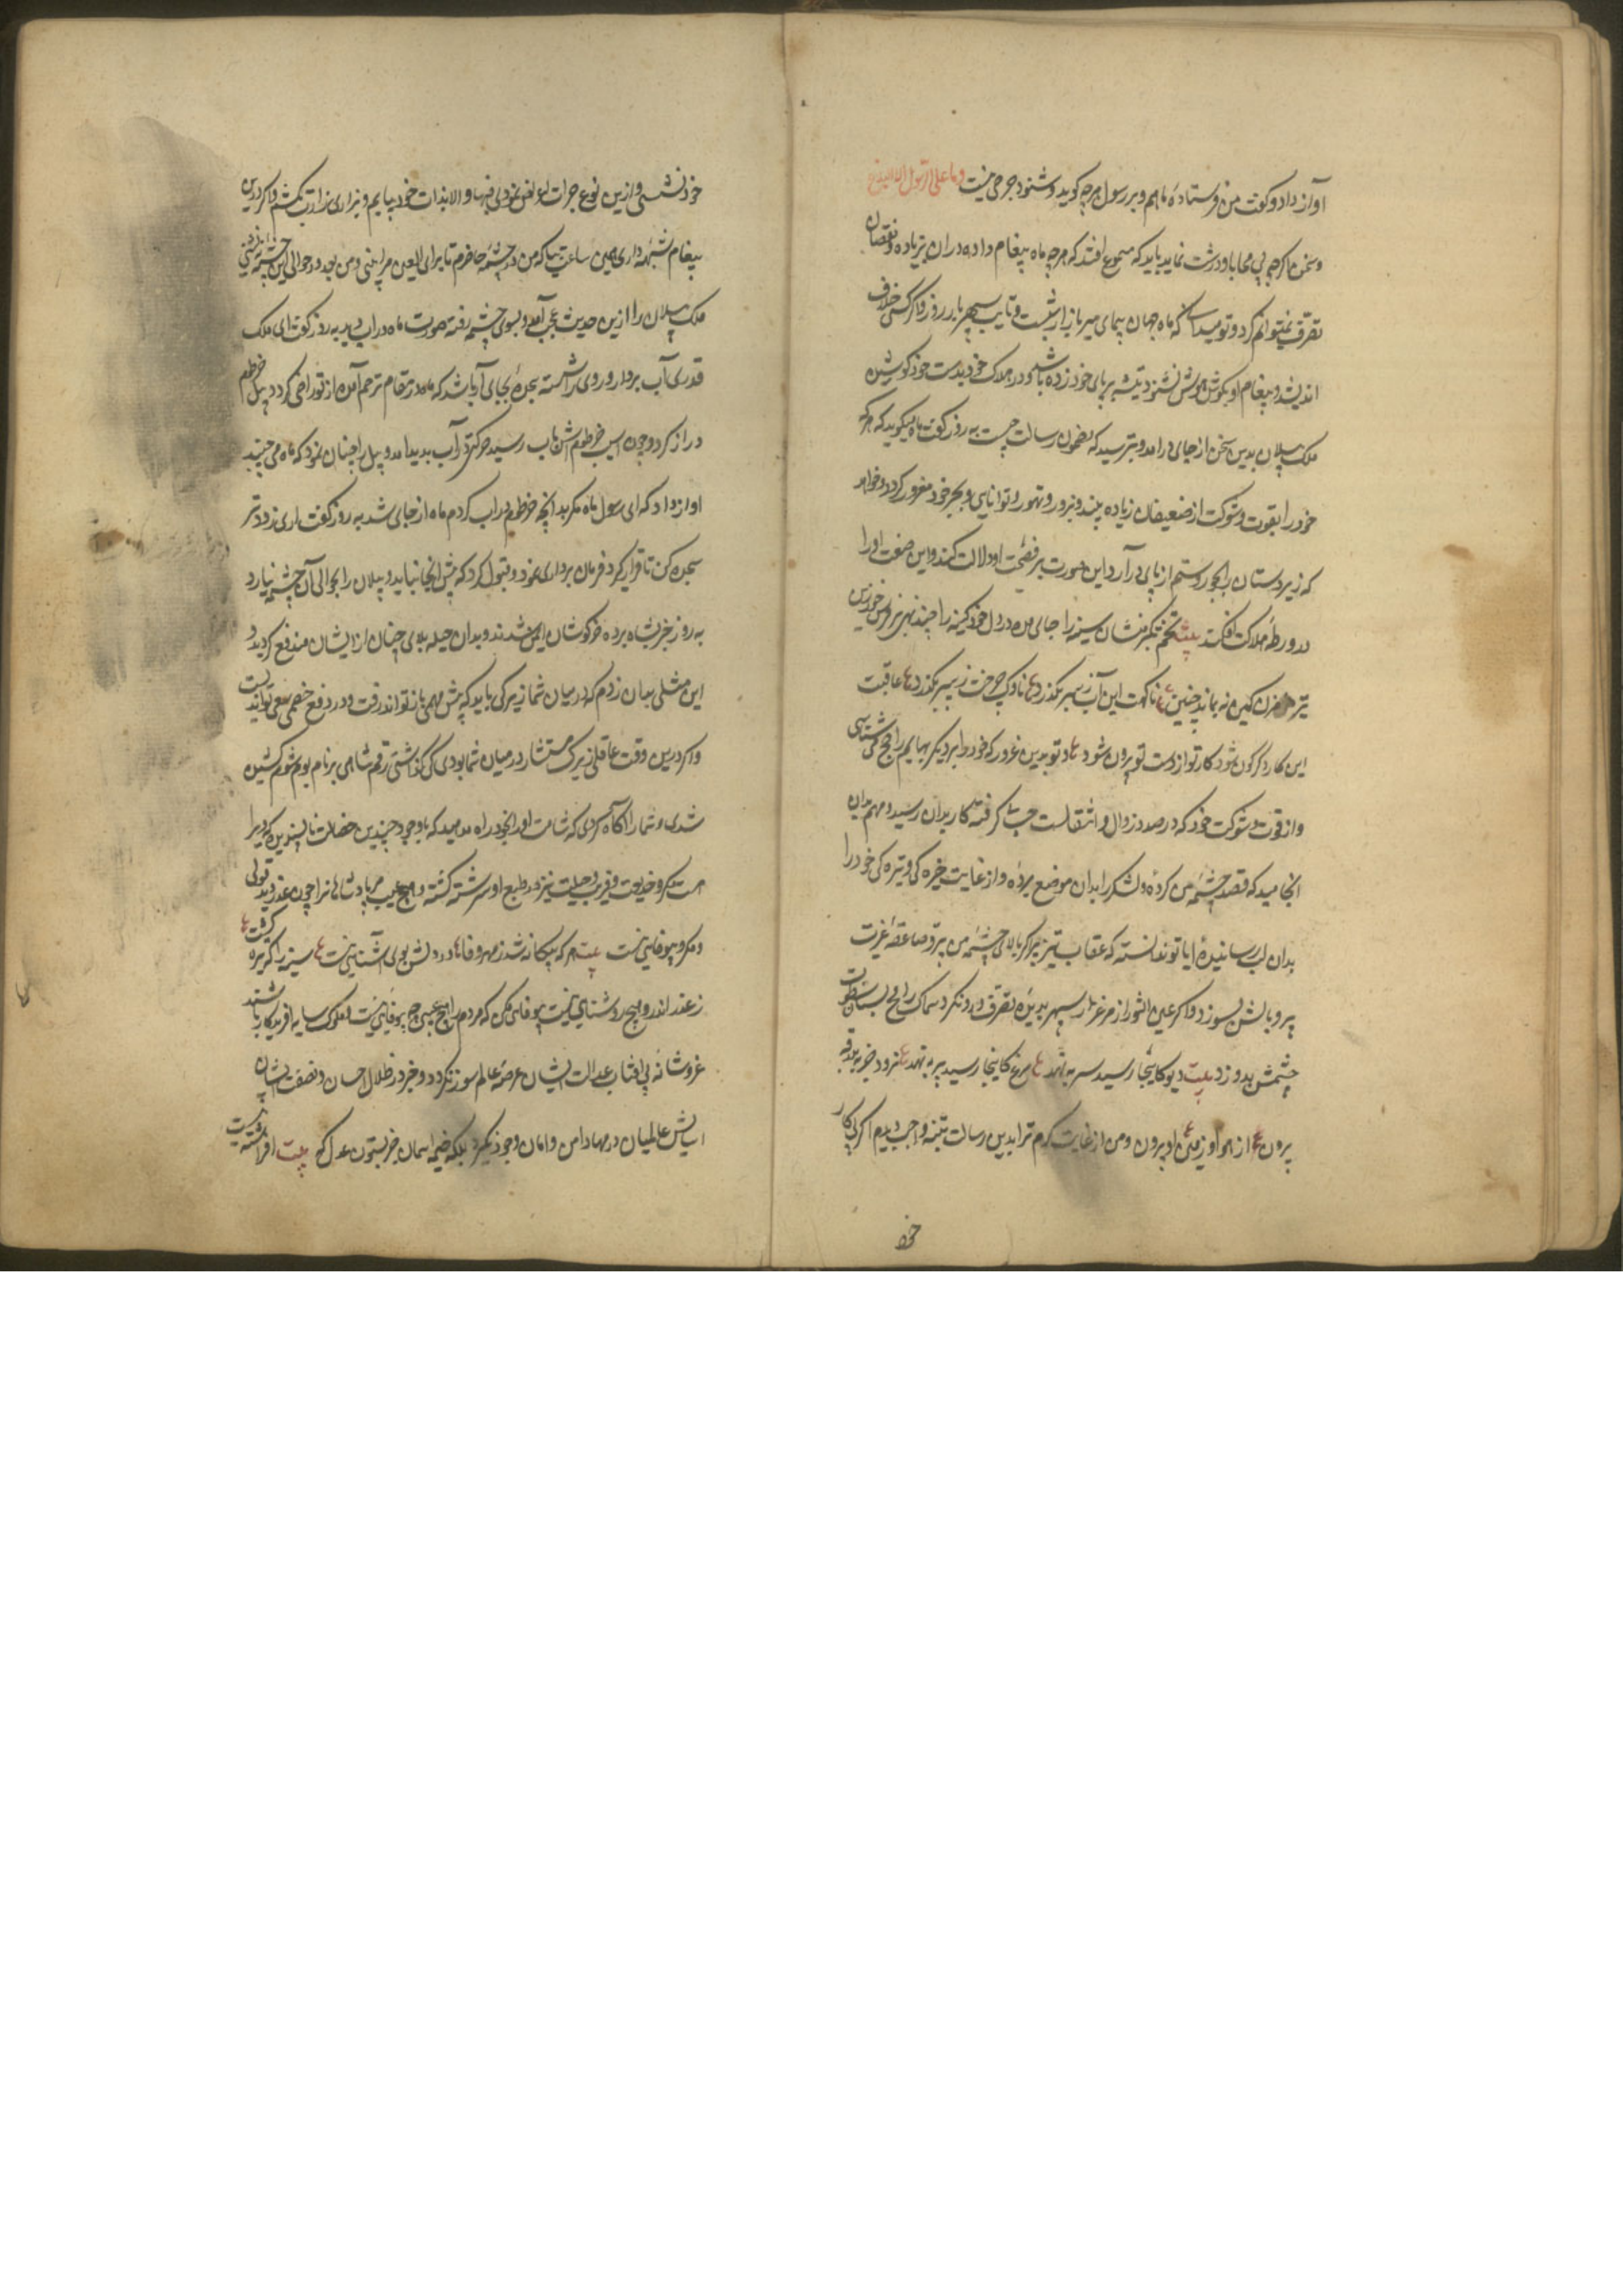 آواز داد و گفت من فرستاده ماهم و بر رسول هرچه گوید و شنود حرجی نیست و ما علی الرسول الا البلاغ
و سخن ما اگرچه بی محابا و درشت نماید باید که مسموع افتد که هرچه ماه پیغام داده دران بزیاده و نقصان
تصرف نمیتوانم کرد و تو میدانی که ماه جهان پیمای میر بازار شبست و نایب سپهر بار روز و اگر کسی خلاف
اندیشد و پیغام او بگوش هوش نشنود تیشه بر پای خود زده باشد و در هلاک خود بدست خود کوشیده
ملک پیلان بدین سخن از جای درامد و بترسید که مضمون رسالت چیست به روز گفت ماه میگوید که هر که
خود را بقوت و شوکت از ضعیفان زیاده بیند و بزور و تهور و توانایی و بجبر خود مغرور گردد و خواهد
که زیردستان را بجور و ستم از پای درآرد این صورت بر فضیحت او دلالت کند و این صفت او را
در ورطه هلاکت افکند بیت تخم تکبر منشان سینه را جای مده در دل خود کینه را چند نهی
تیر کین نه بماند چنین ناگهت این آب ز سر بگذرد ناوک چرخت ز سپر بگذرد عاقبت
این کار دگرگون شود کار تو از دست تو بیرون شود و تو بدین غرور که خود را بر دیگر بهایم راجح می شناسی
و از قوت و شوکت خود که در صدد زوال و انتقالست حساب گرفته کار بدان رسید و مهم بدان
انجامید که قصد چشمه من کرده و لشکر را بدان موضع برده و از غایت خیرگی و تیرگی خود را
بدان لب رسانیده ایا تو ندانسته که عقاب تیز پر اگر بالای چشمه من پرد صاعقه غیرت
پر و بالش بسوزد و اگر عین الثور از مرغزار سپهر بدیده تصرف درو نگرد سماک رامح بسنان سطوت
چشمش بدوزد بیت دیو کاینجا رسید سر بنهد مرغ کاینجا رسید پر بنهد نرود جز ببدرقه
برون از هوا و زمین او بیرون و من از غایت کرم ترا بدین رسالت تنبیه واجب دیدم اگر بکار
خود
خود نشستی و ازین نوع جرات اعراض نمودی فبها و الا بذات خود بیایم و بزاری زارت بکشم و اگر درین
پیغام شبهه داری همین ساعت بیا که من در چشمه حاضرم تا برای العین مرا ببینی و من بعد در حوالی این چشمه نه نشینی
ملک پیلان را ازین حدیث عجب آمد و بسوی چشمه رفته صورت ماه در اب دید به روز گفت ای ملک
قدری آب بردار و روی را شسته سجده بجای آر باشد که ماه در مقام ترحم آمده از تو راضی گردد پیل خرطوم
دراز کرد و چون اسیب خرطومش باب رسید حرکتی در آب پدید امد و پیل را چنان نمود که ماه می جنبد
اواز داد که ای رسول ماه مگر بدانچه خرطوم در اب کردم ماه از جای شد به روز گفت اری زودتر
سجده کن تا قرار گیرد فرمان برداری نمود و قبول کرد که بیش انجا نیاید و پیلان را بحوالی آن چشمه نیارد
به روز خبر بشاه برده خرگوشان ایمن شدند و بدان حیله بلای چنان از ایشان مندفع گردید و
این مثل بدان زدم که در میان شما زیرکی باید که پیش مهمی باز تواند رفت و در دفع خصمی سعی تواند پیوست
و اگر درین وقت عاقلی زیرک مستشار در میان شما بودی کی گذاشتی رقم شاهی بر نام بوم شوم کشیده
شدی و شما را اگاه کردی که شامت او را بخود راه مدهید که باوجود چندین خصلت ناپسندیده که در او را
هست مکر و خدیعت و فریب و حیلت نیز در طبع او سرشته گشته و هیچ عیب مر پادشاهانرا چون غدر و بدقولی
و مکر و بیوفایی نیست بیت هر که بیگانه شد ز مهر و وفا در دلش بوی آشنایی نیست سینه را که تیره گرفت
ز غدر اندرو هیچ روشنایی نیست بیوفایی مکن که مردم را هیچ عیبی چو بیوفایی نیست و ملوک سایه افریدگار باشند
عز و شانه بی افتاب عدالت ایشان عرصه عالم نورانی نگردد و جز در ظلال احسان و نصفت ایشان
اسایش عالمیان در مهاد امن و امان وجود نگیرد بلکه خیمه اسمان جز بستون عدل که بیت افراشته نیست